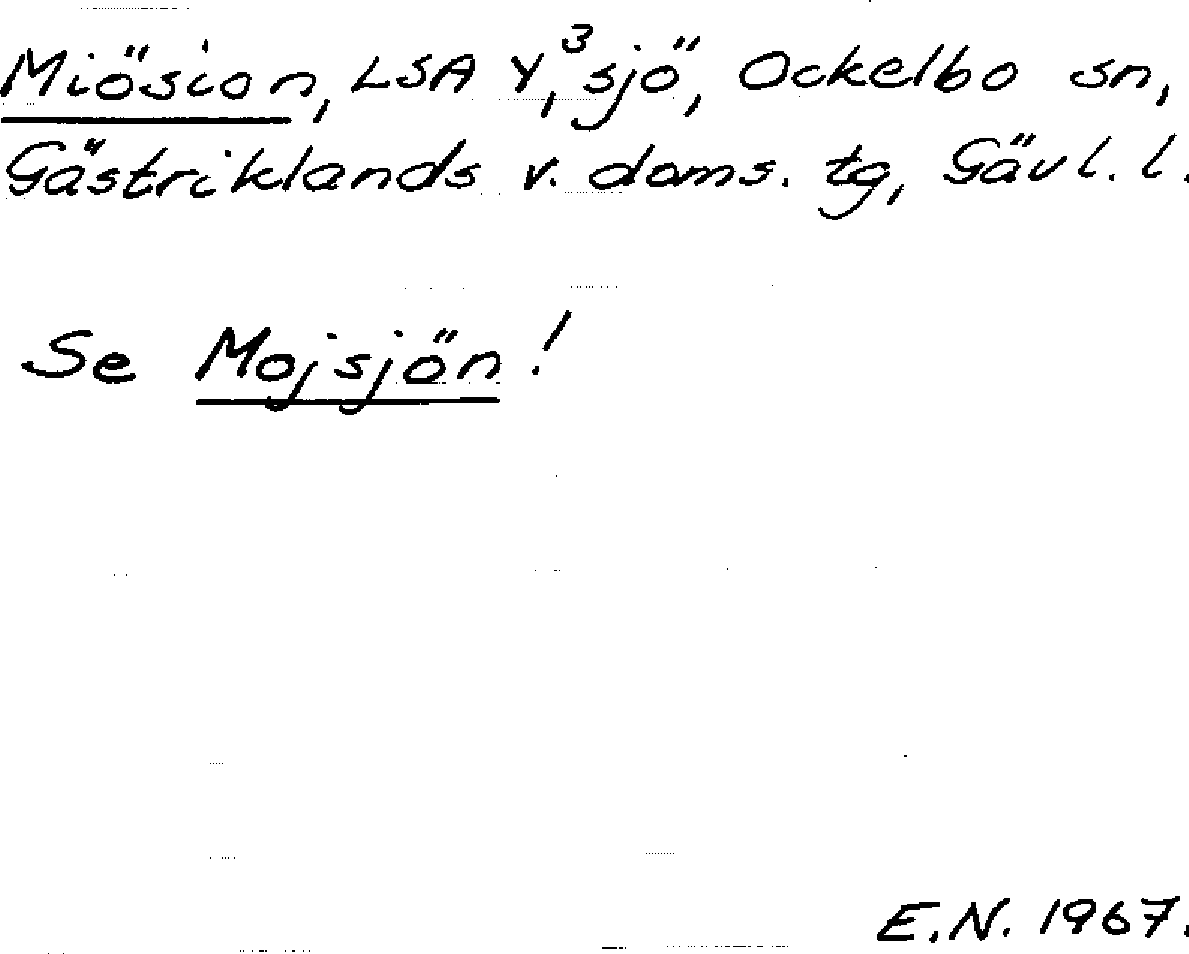 Miösion, LSA Y,³ sjö, Ockelbo sn,
Gästriklands v. doms. tg, Gävl. l.
Se Mojsjön!
E.N. 1967.